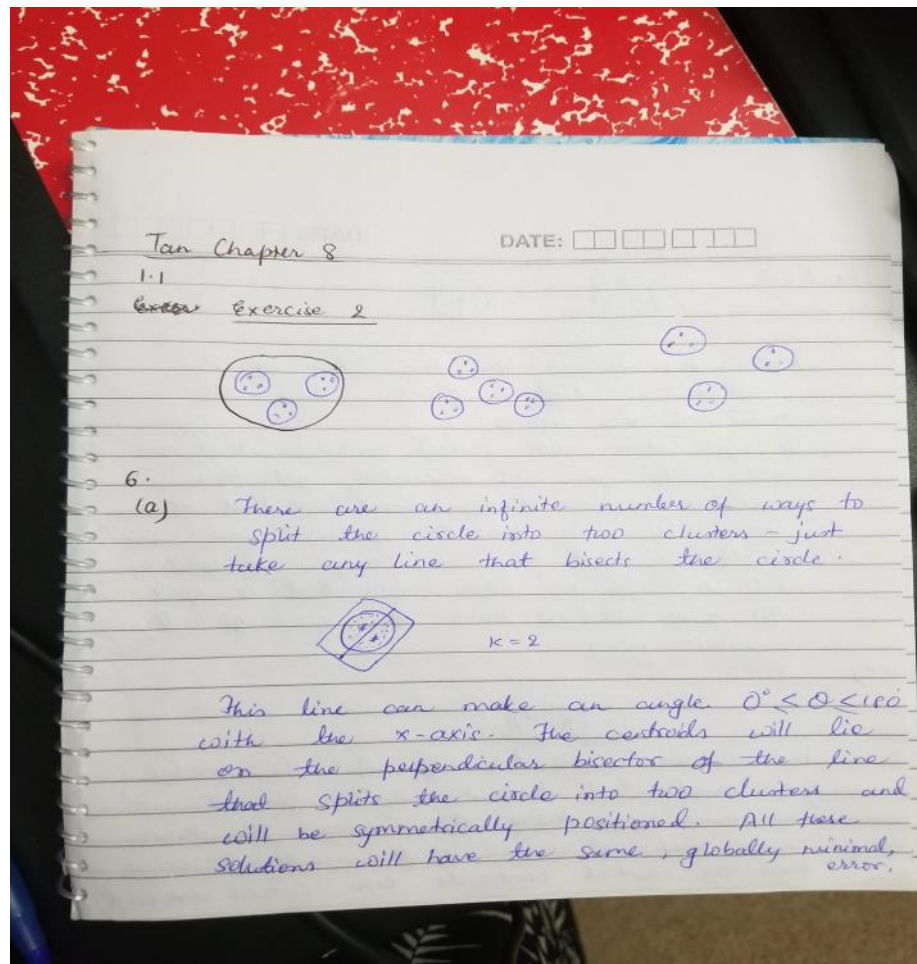 DATE:
Tan Chapter 8
1.1
Exercise 2
6.
(a) There are an infinite number of ways to
split the circle into two clusters - just
take any line that bisects the circle.
K = 2
This line can make an angle 0° ≤ θ ≤ 180°
with the x-axis. The centroids will lie
on the perpendicular bisector of the line
that splits the circle into two clusters and
will be symmetrically positioned. All these
solutions will have the same, globally minimal,
error.